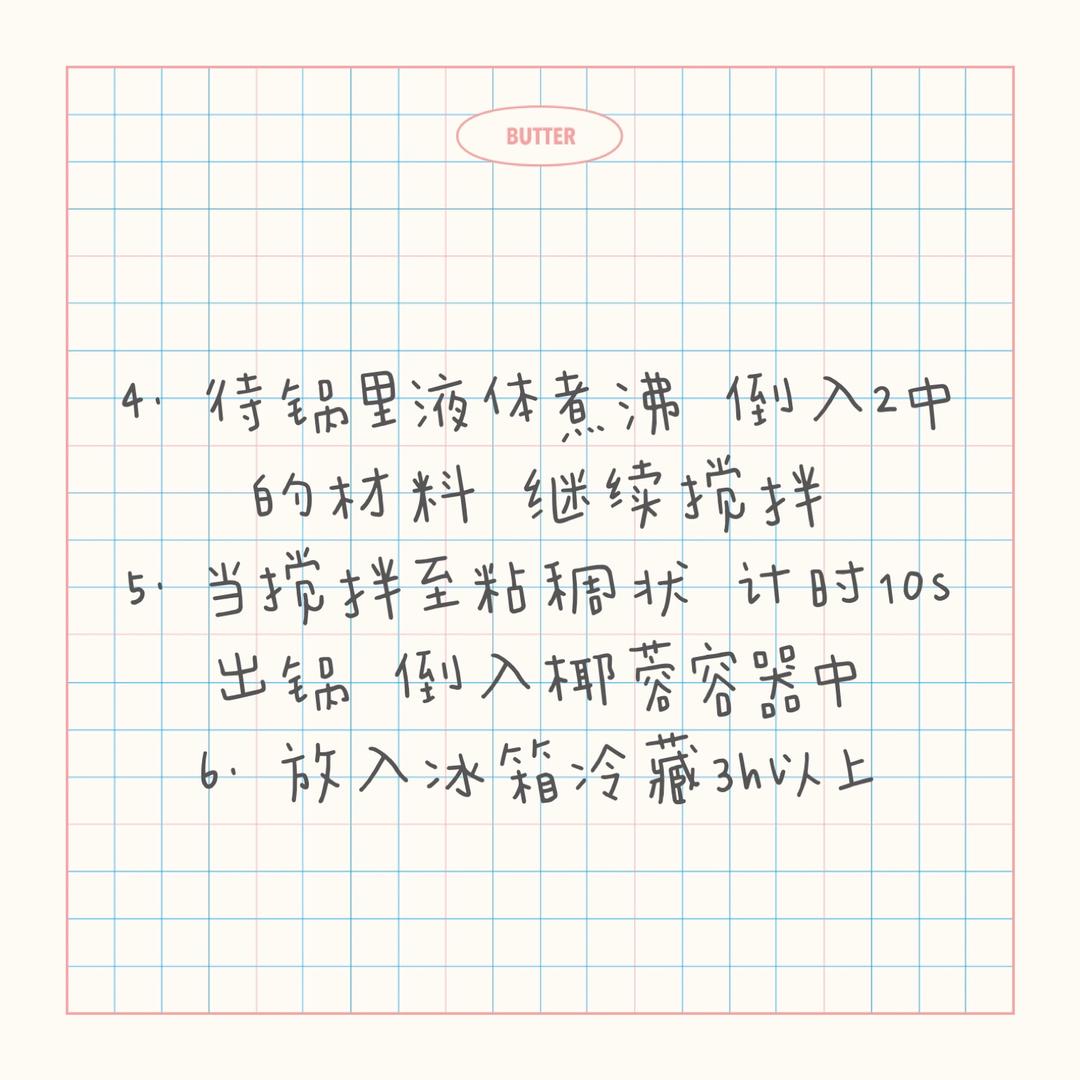 BUTTER
4. 待锅里液体煮沸 倒入2中
的材料 继续搅拌
5. 当搅拌至粘稠状 计时10s
出锅 倒入椰蓉容器中
6. 放入冰箱冷藏3h以上